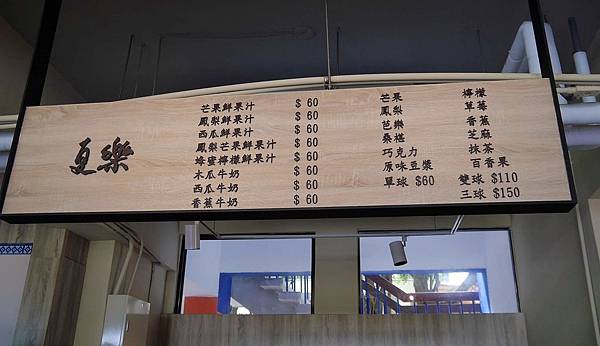 夏樂
芒果鮮果汁 $ 60
鳳梨鮮果汁 $ 60
西瓜鮮果汁 $ 60
鳳梨芒果鮮果汁 $ 60
蜂蜜檸檬鮮果汁 $ 60
木瓜牛奶 $ 60
西瓜牛奶 $ 60
香蕉牛奶 $ 60
芒果 檸檬
鳳梨 草莓
芭樂 香蕉
桑椹 芝麻
巧克力 抹茶
原味豆漿 百香果
單球 $60 雙球 $110
三球 $150